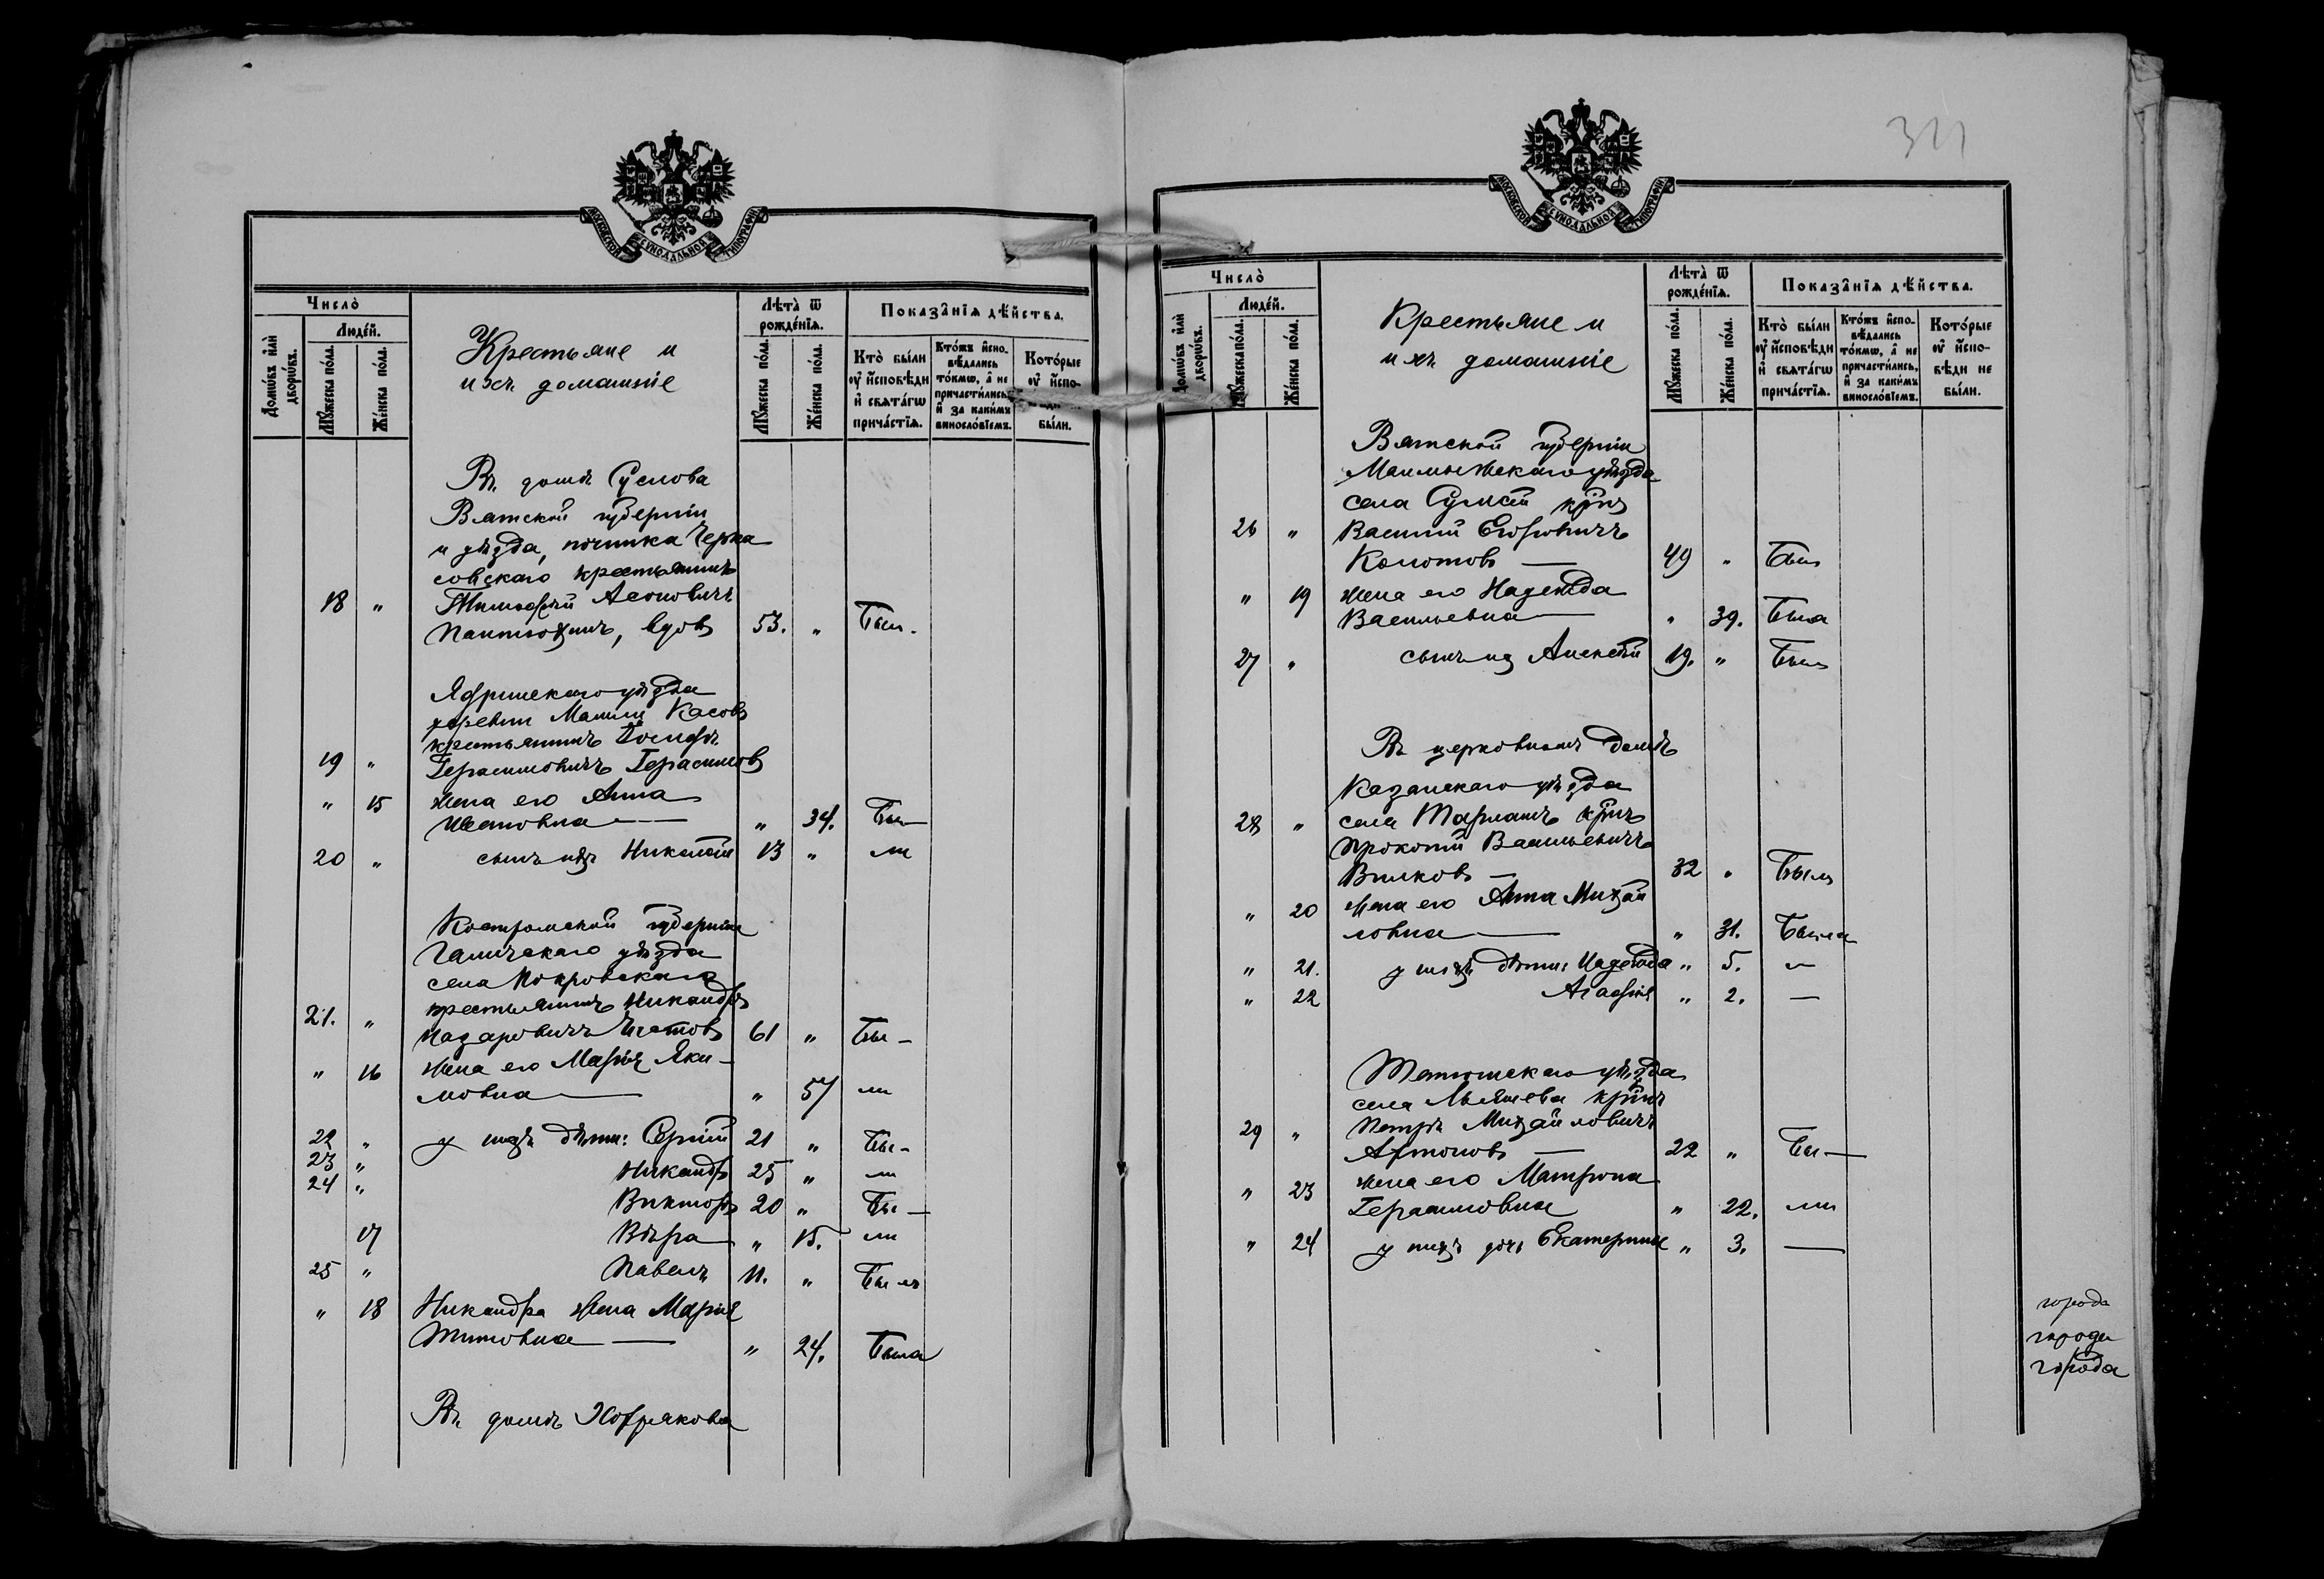 МОСКОВСКОЙ СѴНОДАЛЬНОЙ ТИПОГРАФІИ
Число̀
Людéй.
Домѡ́въ и҆лѝ дворѡ́въ.
Мꙋ́жеска по́ла.
Же́нска по́ла.
Крестьяне и
ихъ домашніе
Лѣ́та ѿ рожде́нїѧ.
Мꙋ́жеска по́ла.
Же́нска по́ла.
Показа̑нїѧ дѣ́йства.
Кто̀ бы́ли ᲂу҆ и҆сповѣ́ди и҆ свѧта́гѡ прича́стїѧ.
Кто́жъ и҆сповѣ́дались то́кмѡ, а҆ не причасти́лись, и҆ за каки́мъ винословїемъ.
Кото́рые ᲂу҆ и҆спо- бы́ли.
Въ домѣ Суслова
Вятской губерніи
и уѣзда, починка Черка
совскаго крестьянинъ
18 " Тимофей
Пантюхинъ, вдовъ 53. " Былъ.
Ядринскаго уѣзда
деревни Малыи Касовъ
крестьянинъ Іосифъ
19 " Герасимовичъ Герасимовъ
" 15 жена его Анна
Ивановна — " 34. Бы—
20 " сынъ ихъ Николай 13 " ли
Костромской губерніи
Галичскаго уѣзда
села Покровскаго
крестьянинъ Никандръ
21. " Назаровичъ 61 " Бы —
" 16 жена его Марія Яки-
мовна — " 57 ли
22 " у нихъ дѣти: Сергій 21 " Бы-
23 " Никандръ 25 " ли
24 " Викторъ 20 " Бы —
17 Вѣра " 15. ли
25 " Павелъ 11. " Былъ
" 18 Никандра жена Марія
Титовна — " 24. Была
Въ домѣ Хохрякова
311
МОСКОВСКОЙ СѴНОДАЛЬНОЙ ТИПОГРАФІИ
Число̀
Людéй.
Домѡ́въ и҆лѝ дворѡ́въ.
Мꙋ́жеска по́ла.
Же́нска по́ла.
Крестьяне и
ихъ домашніе
Лѣ́та ѿ рожде́нїѧ.
Мꙋ́жеска по́ла.
Же́нска по́ла.
Показа̑нїѧ дѣ́йства.
Кто̀ бы́ли ᲂу҆ и҆сповѣ́ди и҆ свѧта́гѡ прича́стїѧ.
Кто́жъ и҆сповѣ́дались то́кмѡ, а҆ не причасти́лись, и҆ за каки́мъ винословїемъ.
Кото́рые ᲂу҆ и҆сповѣ́ди не бы́ли.
Вятской губерніи
Малмыжскаго уѣзда
села Сумси крнъ
26 " Василій Егоровичъ
Колотовъ — 49 " Былъ
" 19 жена его Надежда
Васильевна — " 39. Была
27 " сынъ их Алексѣй 19. " Былъ
Въ церковномъ домѣ
Казанскаго уѣзда
28 " села Тарлашъ крнъ
Прокопій Васильевичъ
Вилковъ — 32 " Былъ
" 20 жена его Анна Михай
ловна — " 31. Была
" 21. у нихъ дѣти: Надежда " 5. —
" 22 Агафія " 2. —
Тетюшскаго уѣзда
села крнъ
29 " Петръ Михайловичъ
Артоновъ — 22 " Бы —
" 23 жена его Матрона
Герасимовна " 22. ли
" 24 у нихъ дочь Екатерина " 3. —
города
города
города